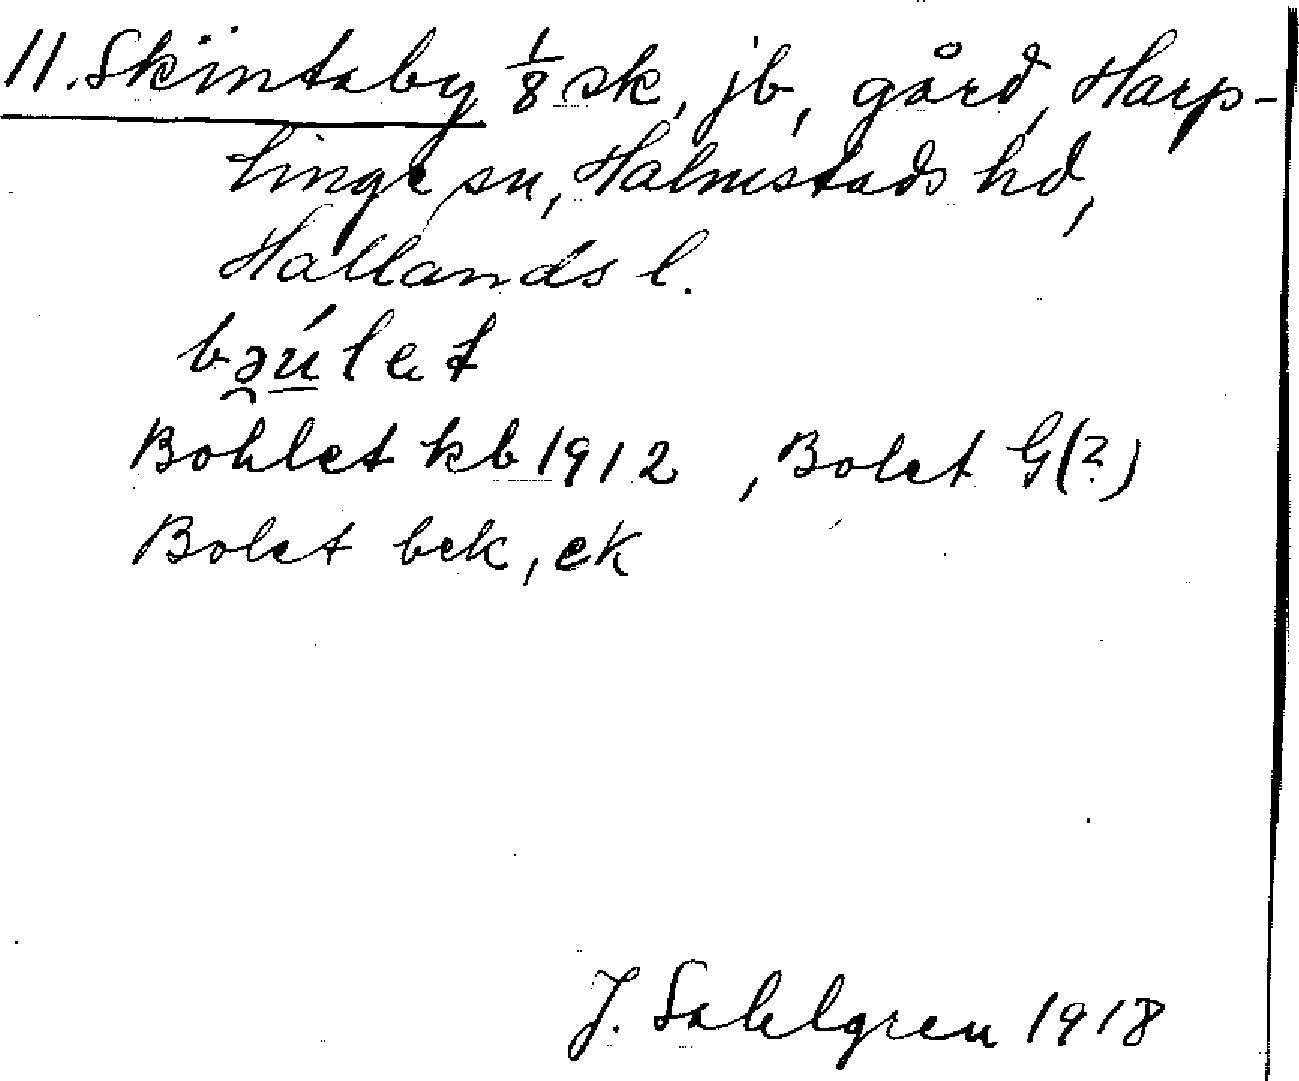 11. Skintaby 1/8 sk, jb, gård, Harp-
linge sn, Halmstads hd,
Hallands l.
bəúlet
Bohlet kb 1912, Bolet G(?)
Bolet bek, ek
J. Sahlgren 1918